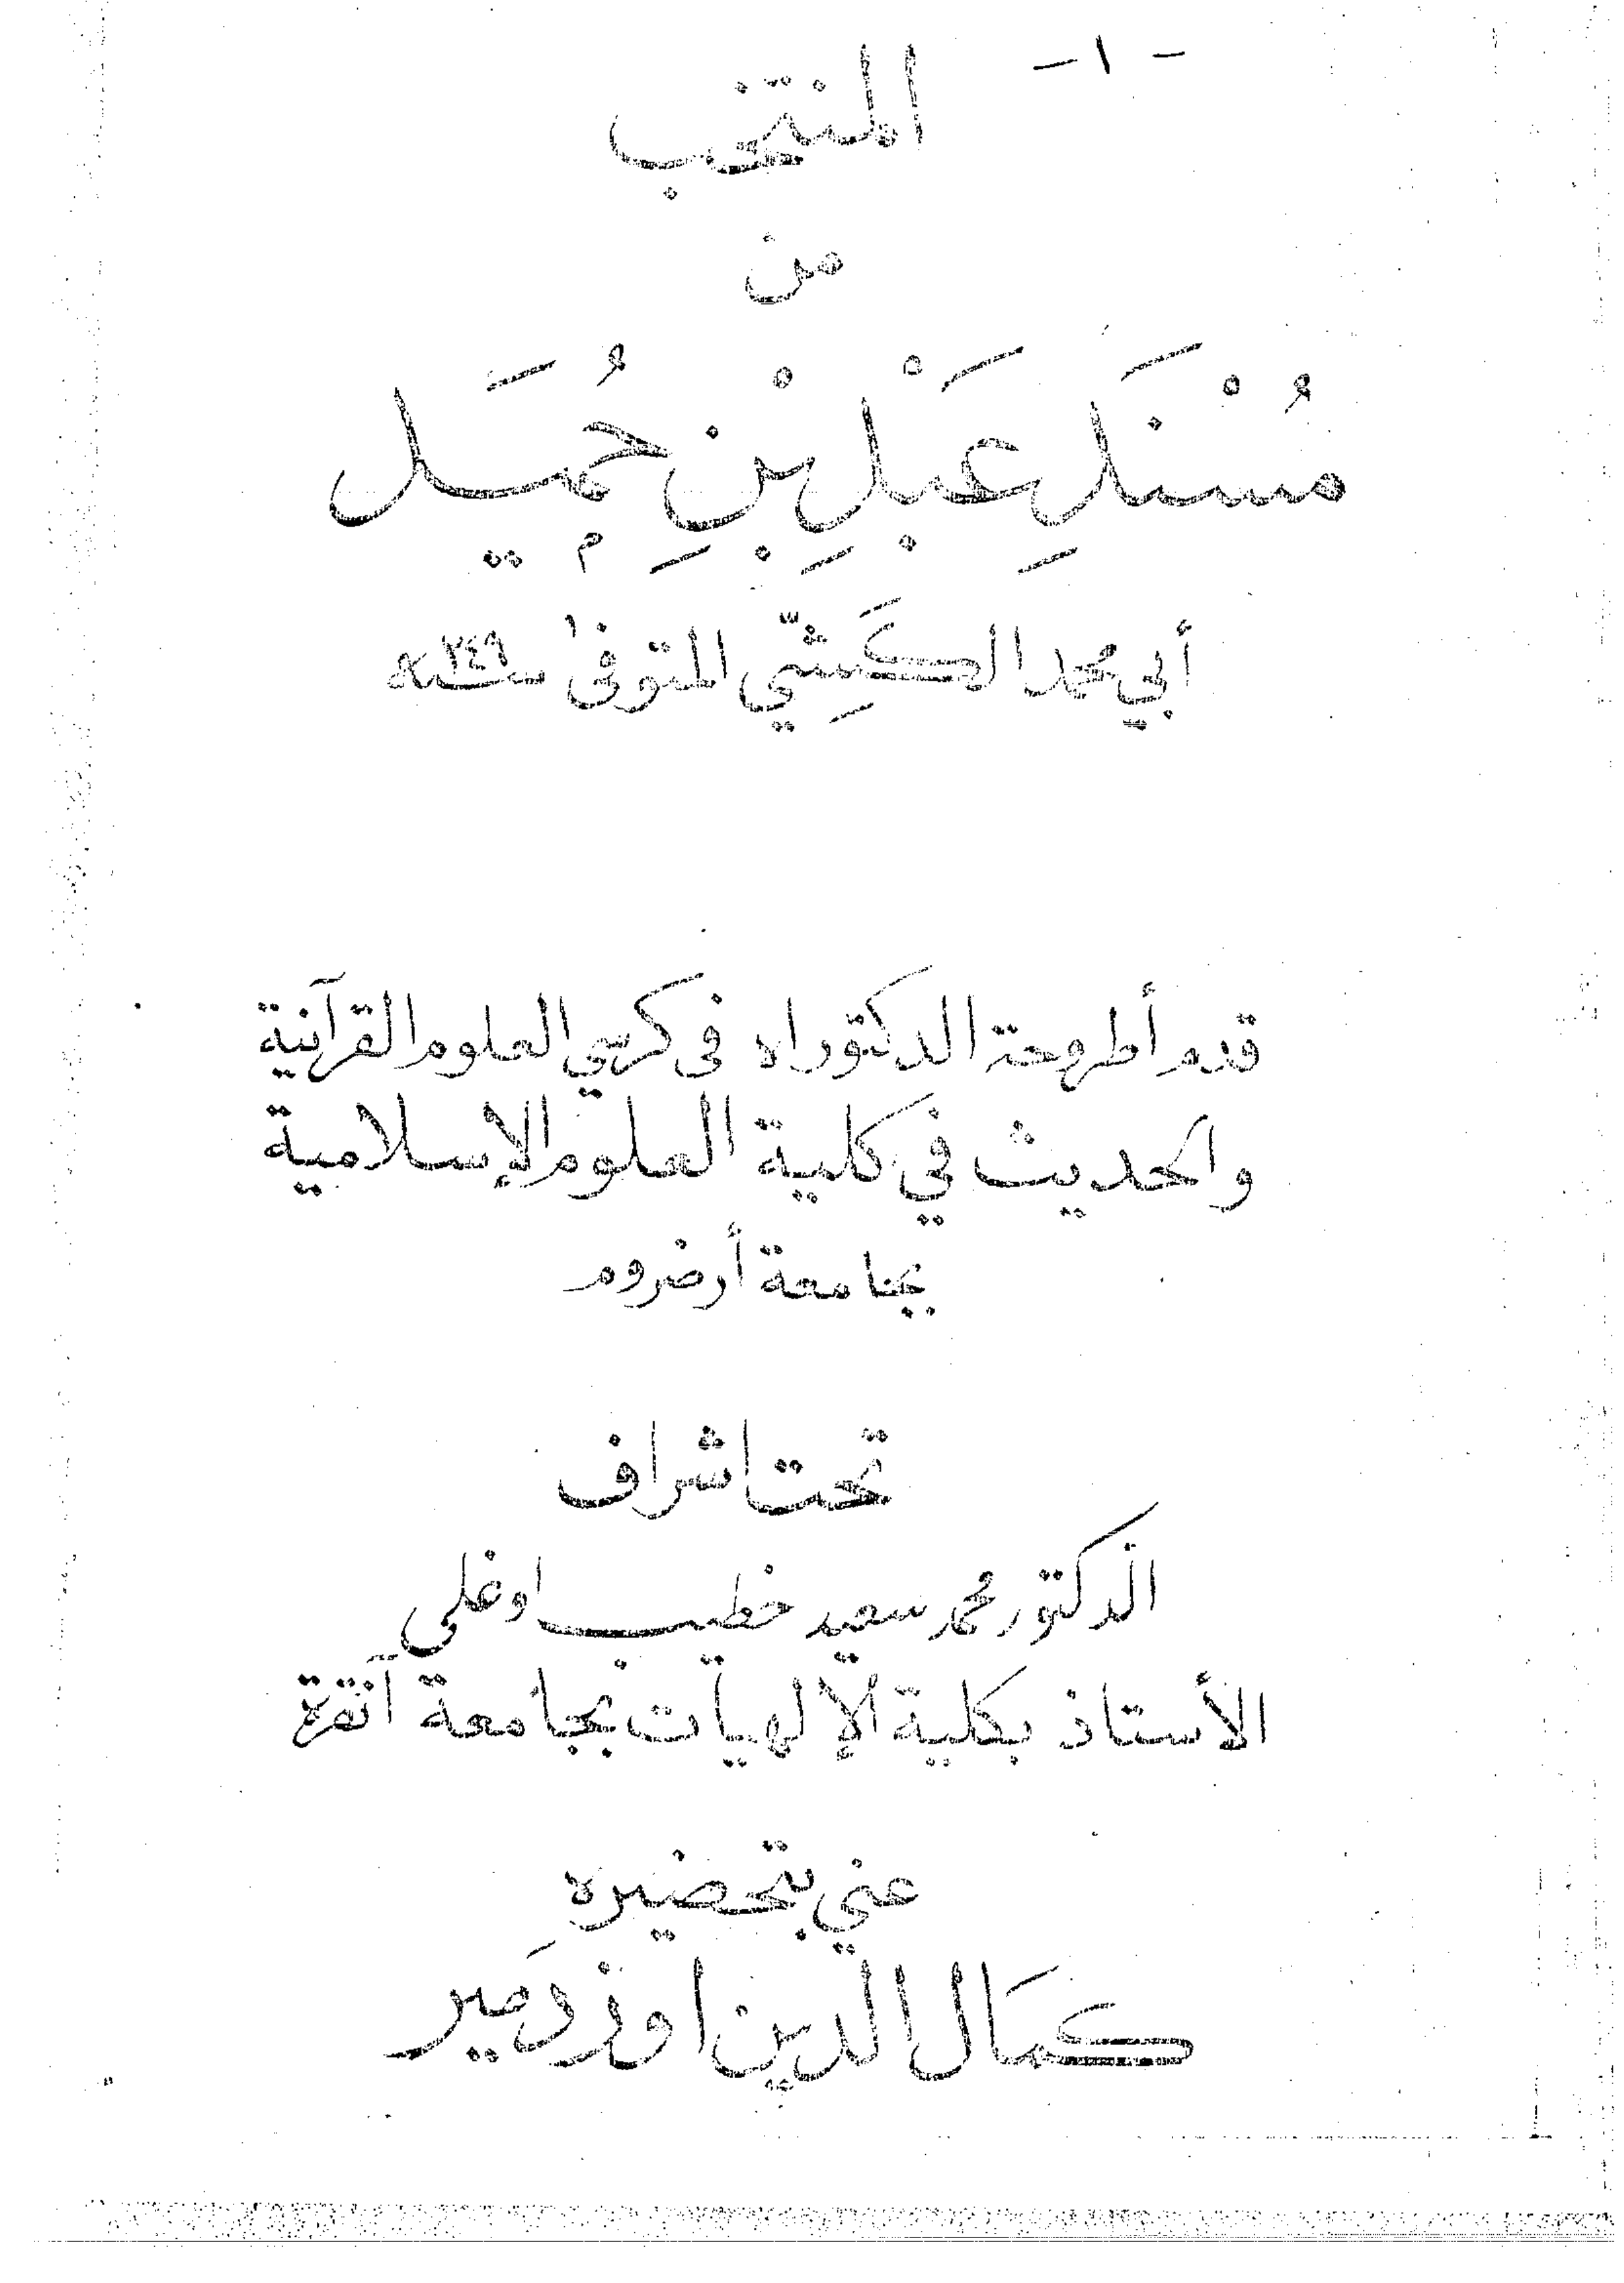 - ١ -
المنتخب
من
مُسْنَدِ عَبْدِ بْنِ حُمَيْد
أبي محمد الكَشِّي المتوفىٰ سنة ٢٤٩ هـ
قدم أطروحة الدكتوراه فى كرسي العلوم القرآنية
والحديث في كلية العلوم الإسلامية
بجامعة أرضروم
تحت اشراف
الدكتور محمد سعيد خطيب اوغلى
الأستاذ بكلية الإلهيات بجامعة آنقرة
عني بتحضيره
كمَال الدين اوزدَمير